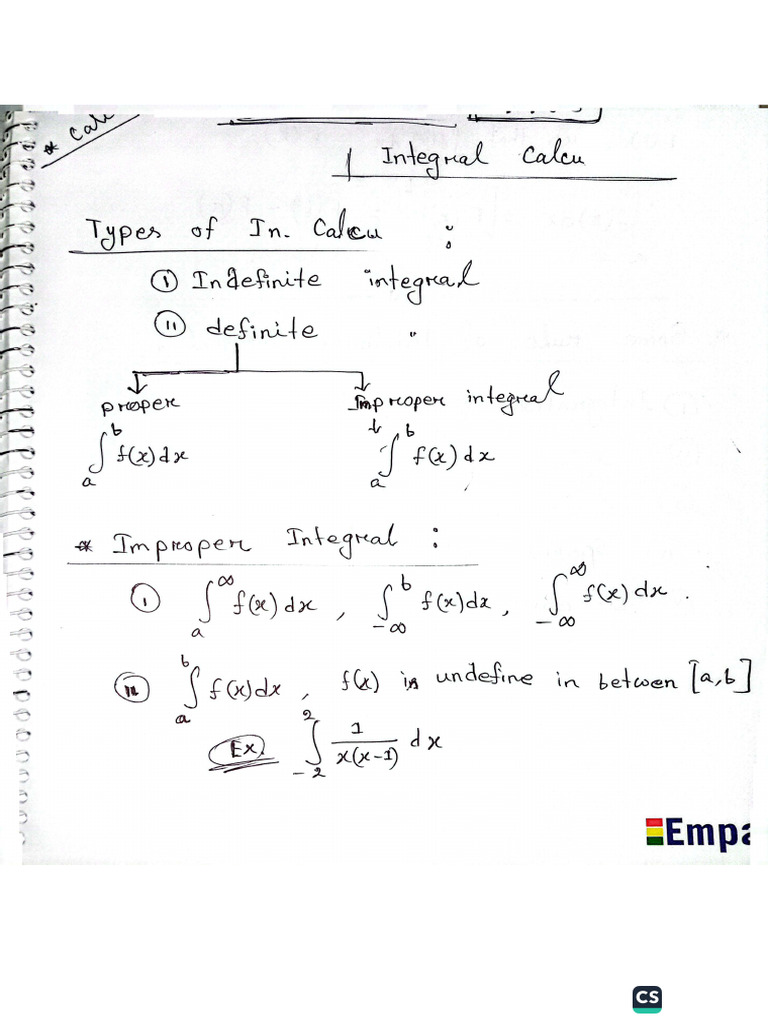 * Calc
Integral Calcu
Types of In. Calcu :
(i) Indefinite integral
(ii) definite "
proper Improper integral
∫_a^b f(x)dx ∫_a^b f(x)dx
* Improper Integral :
(i) ∫_a^∞ f(x)dx, ∫_{-∞}^b f(x)dx, ∫_{-∞}^∞ f(x)dx.
(ii) ∫_a^b f(x)dx, f(x) is undefine in betwen [a,b]
Ex. ∫_{-2}^2 1/(x(x-1)) dx
Empa
CS